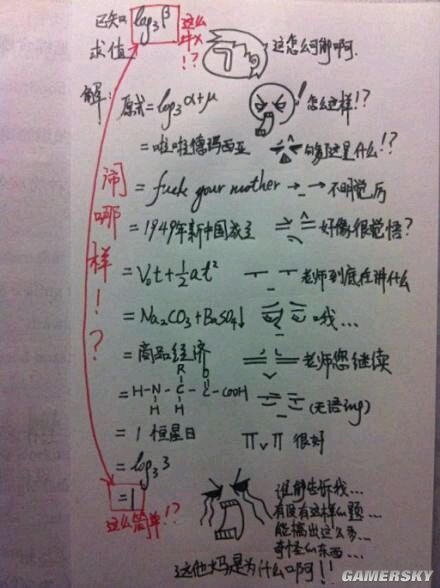 已知 log₃β 这么
求值 !? 这怎么可能啊.
解: 原式=log₃α+μ 怎么这样!?
=啦啦德玛西亚 这是什么!?
=fuck your mother →_→不明觉厉
=1949年新中国成立 好像很觉悟?
=V₀t+½at² 老师到底在讲什么
=Na₂CO₃+BaSO₄↓ 哦...
=商品经济 老师您继续
R
=H-N-C-C-COOH (无语ing)
H H
=1恒星日 很好
=log₃3
=1
这么简单!?
闹哪样!?
谁能告诉我...
有没有这样的题...
能搞出这么多...
奇怪的东西...
这他大妈是为什么啊!!
GAMERSKY